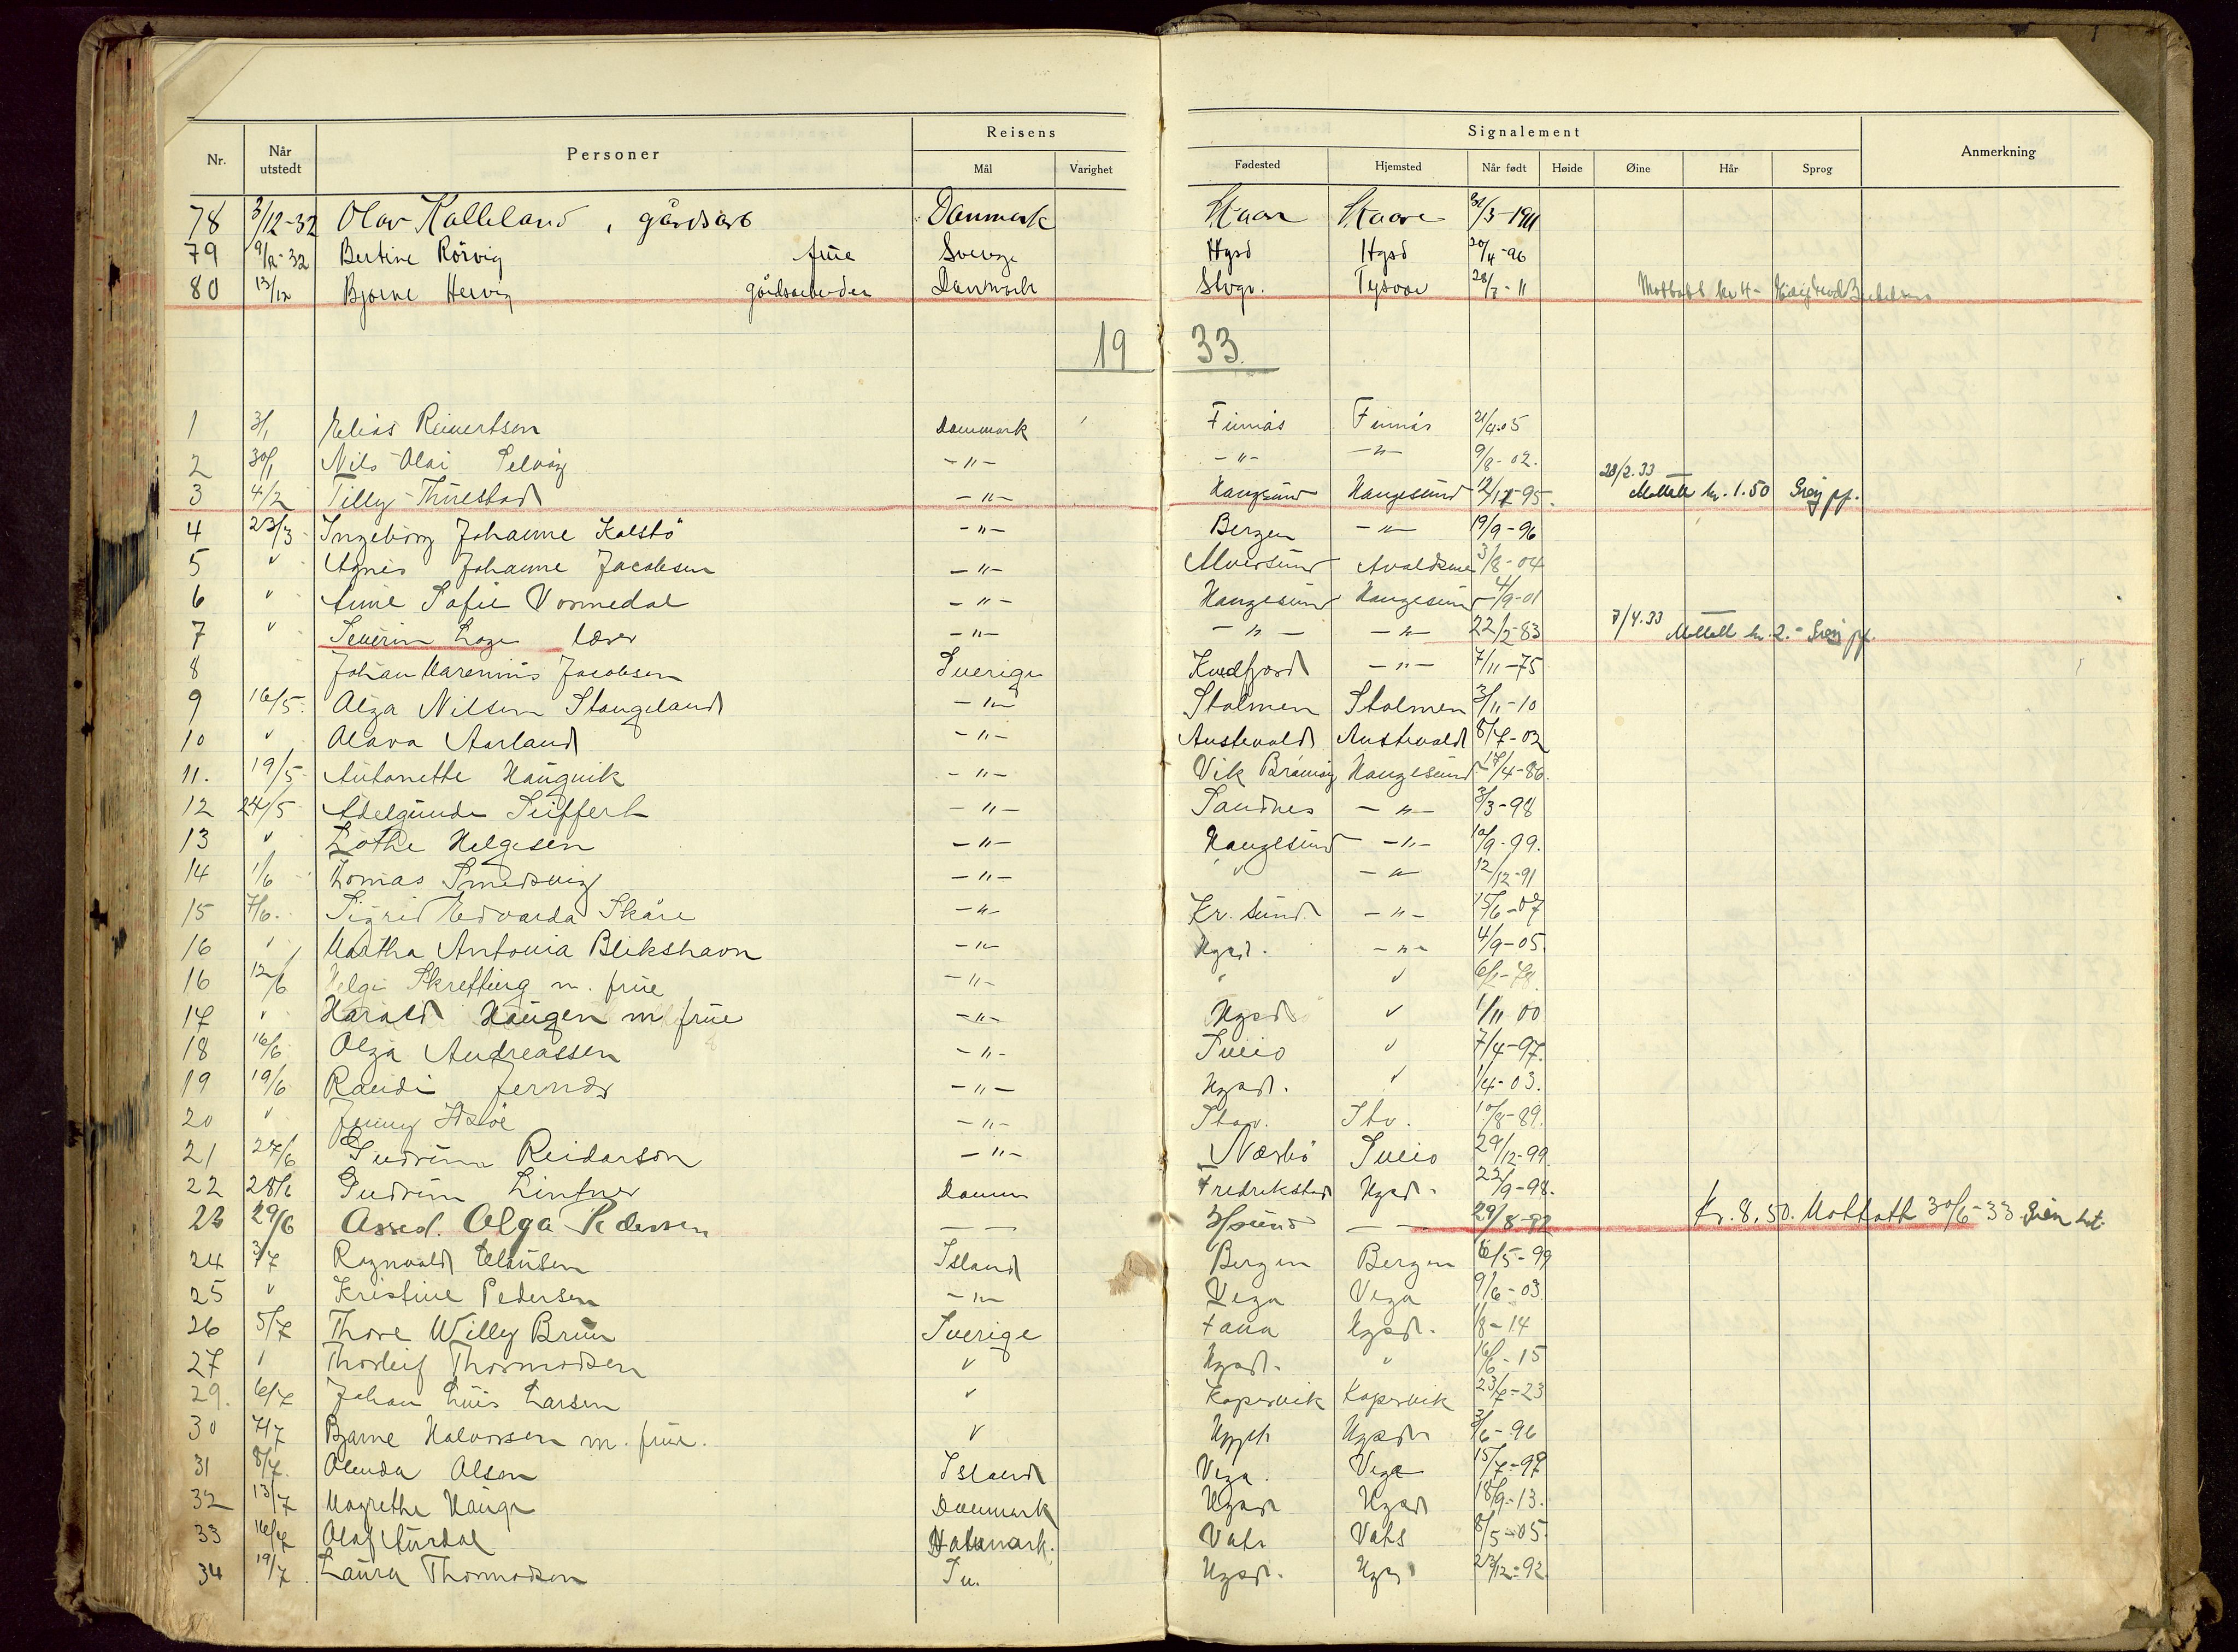 Nr. Når utstedt Personer Reisens Mål Varighet Signalement Fødested Hjemsted Når født Høide Øine Hår Sprog Anmerkning
78 3/12-32 Olav Kalleland, gårdsarb Danmark Skaare Skaare 31/3-1911
79 9/12-32 Bertine Rörvig frue Sverige Hgsd Hgsd 20/4-96
80 13/12 Bjarne Hervig gårdsarbeider Danmark Stvgr. Tysvær 28/7-11 Mottatt kr 4-
19 33.
1 3/1 Elias Reinertsen Danmark Finnås Finnås 21/4.05
2 30/1 Nils Olai Selvåg -"- -"- -"- 9/8-02.
3 4/2 Tilly Thuestad -"- Haugesund Haugesund 12/12-95. 28/2.33 Mottatt kr. 1.50
4 23/3 Ingeborg Johanne Kalstö -"- Bergen -"- 19/9-96
5 " Agnes Johanne Jacobsen -"- Alversund Avaldsnes 3/8-04
6 " Anne Sofie Vormedal -"- Haugesund Haugesund 4/9-01
7 " Severin Lage lærer -"- -"- -"- 22/2-83 7/4.33 Mottatt kr. 2.-
8 Johan Marenius Jacobsen Sverige Kvedfjord -"- 7/11-75
9 16/5. Olga Nilsen Stangeland -"- Stolmen Stolmen 3/11-10
10 " Olava Aarland -"- Austevold Austevold 8/7-02
11. 19/5 Antonette Haugvik -"- Vik Brönnöy Haugesund 17/4-86.
12 24/5 Adelgunde Suffert -"- Sandnes -"- 3/3-98
13 " Lothe Helgesen -"- Haugesund -"- 10/9-99.
14 1/6 Thomas Smedsvig -"- " -"- 12/12-91
15 7/6. Sigrid Edvarda Skåre -"- Kr. sund -"- 15/6-07
16 " Martha Antonia Blikshavn -"- Hgsd. -"- 4/9-05.
16 12/6 Helge Skretting m. frue -"- " "
17 " Harald Haugen m frue -"- Hgsd " 1/11 00
18 16/6 Olga Andreassen -"- Sveio " 7/4-97.
19 19/6 Randi Jernæs -"- Hgsd. " 1/4-03.
20 " Jenny -"- Stav. Stv. 10/8-89.
21 27/6 Gudrun Reidarson -"- Nærbö Sveio 29/12-99.
22 28/6 Gudrun Lintner Danm Fredrikstad Hgsd. 22/9-98.
23 29/6 Assed. Olga Pedersen — — — — 29/8-92 Kr. 8,50. Mottatt 30/6-33
24 3/7 Ragnvald Clausen Island Bergen Bergen 6/5-99
25 " Kristine Pedersen -"- Vega Vega 9/6-03.
26 5/7 Thore Willy Bruun Sverige Fana Hgsd. 1/8-14
27 " Thorleif Thormodsen " Hgsd. " 16/6-15
29. 6/7 Johan Luis Larsen " Kopervik Kopervik 23/7-23
30 7/7 Bjarne Halvorsen m. frue. " Hgsd Hgsd 3/6-96
31 8/7. Olenda Olsen Island Vega. Vega 15/7-97
32 13/7 Magrethe Hauge Danmark Hgsd Hgsd 18/9-13.
33 14/7 Olaf Aurdal Danmark. Vats Vats 8/5-05.
34 19/7 Laura Thormodsen Sv. Hgsd. Hgs 23/12-92.